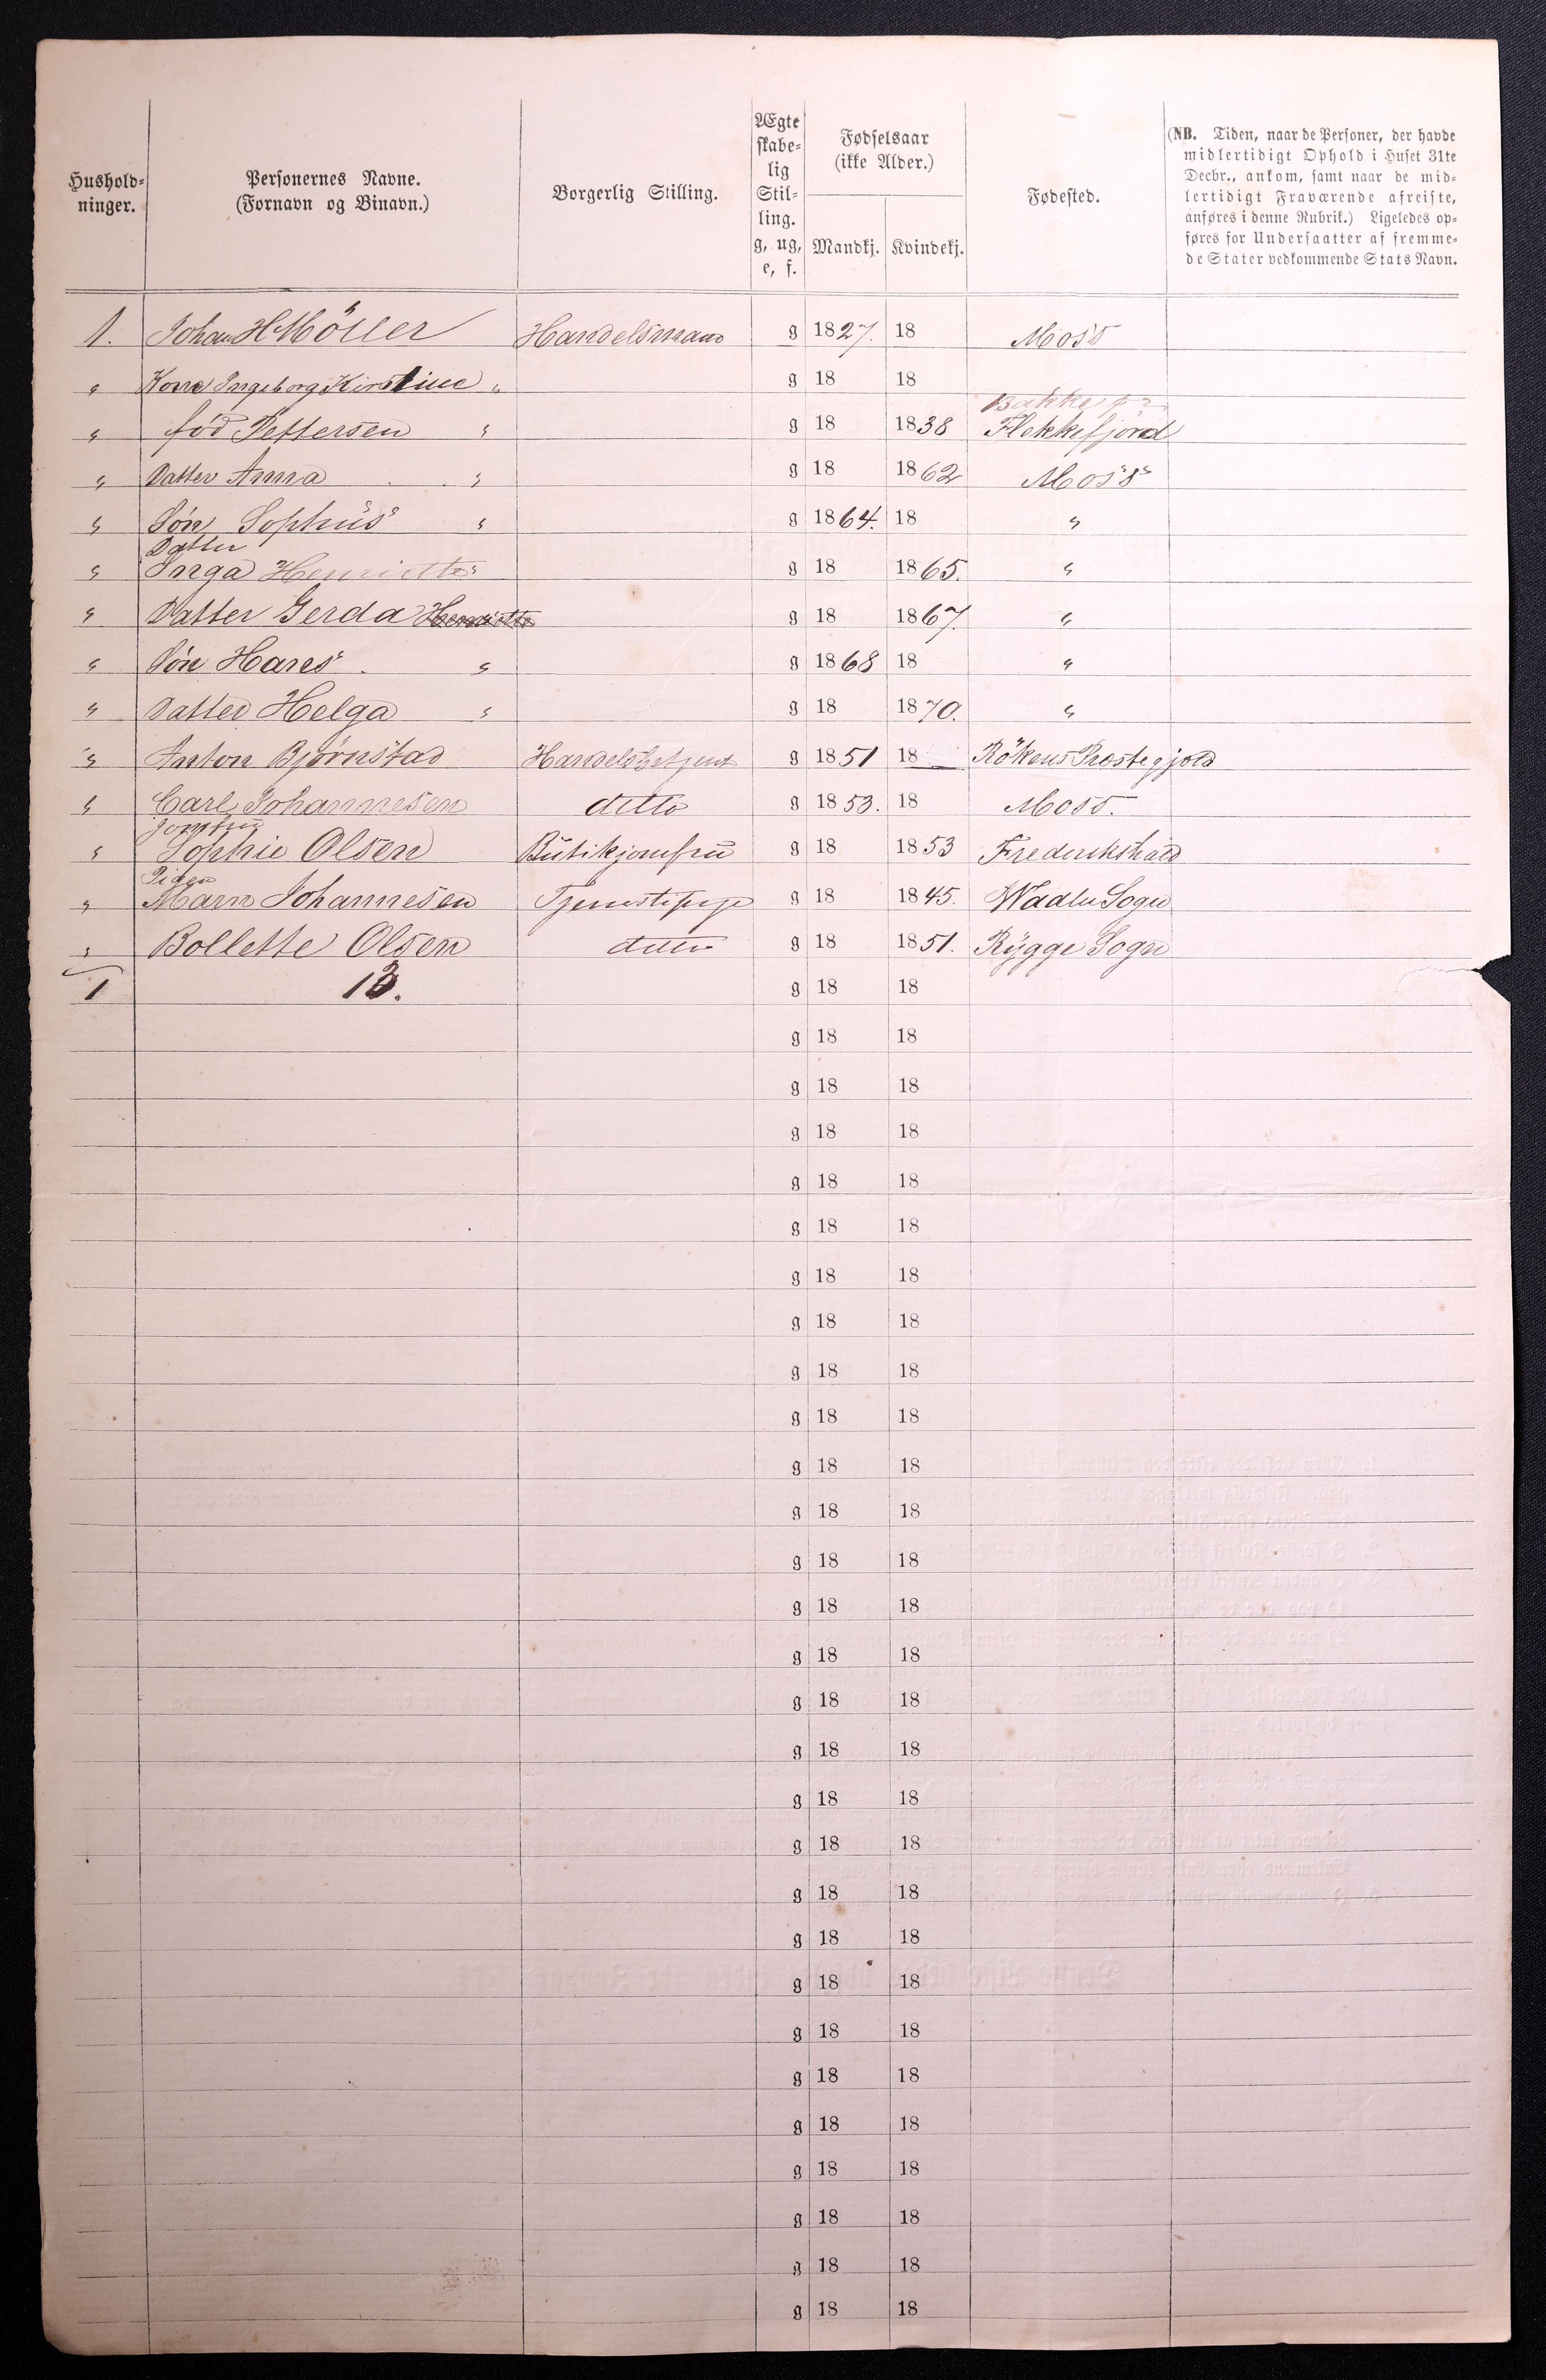 Hushold-
ninger.
Personernes Navne.
(Fornavn og Binavn.)
Borgerlig Stilling.
Ægte
skabe-
lig
Stil-
ling.
g, ug,
e, f.
Fødselsaar
(ikke Alder.)
Mandkj. Kvindekj.
Fødested.
(NB. Tiden, naar de Personer, der havde
midlertidigt Ophold i Huset 31te
Decbr., ankom, samt naar de mid-
lertidigt Fraværende afreiste,
anføres i denne Rubrik.) Ligeledes op-
føres for Undersaatter af fremme-
de Stater vedkommende Stats Navn.
1. Johan H Möller Handelsmand g 1827. 18 Moss
" Kone Ingeborg Kirstine " g 18 18
Bakke
" fød Pettersen " g 18 1838 Flekkefjord
" Datter Anna " g 18 1862 Moss
" Søn Sophus " g 1864. 18 "
Datter
" Inga Henriette " g 18 1865. "
" Datter Gerda Henriette g 18 1867. "
" Søn Hans " g 1868 18 "
" Datter Helga " g 18 1870. "
" Anton Bjørnstad Handelsbetjent g 1851 18 Rökens Prestegjeld
" Carl Johannesen ditto g 1853. 18 Moss.
Jomfru
" Sophie Olsen Butikjomfru g 18 1853 Frederikshald
Pigen
" Maren Johannesen Tjenestepige g 18 1845. Waaler Sogn
" Bollette Olsen ditto g 18 1851. Rygge Sogn
1 13. g 18 18
g 18 18
g 18 18
g 18 18
g 18 18
g 18 18
g 18 18
g 18 18
g 18 18
g 18 18
g 18 18
g 18 18
g 18 18
g 18 18
g 18 18
g 18 18
g 18 18
g 18 18
g 18 18
g 18 18
g 18 18
g 18 18
g 18 18
g 18 18
g 18 18
g 18 18
g 18 18
g 18 18
g 18 18